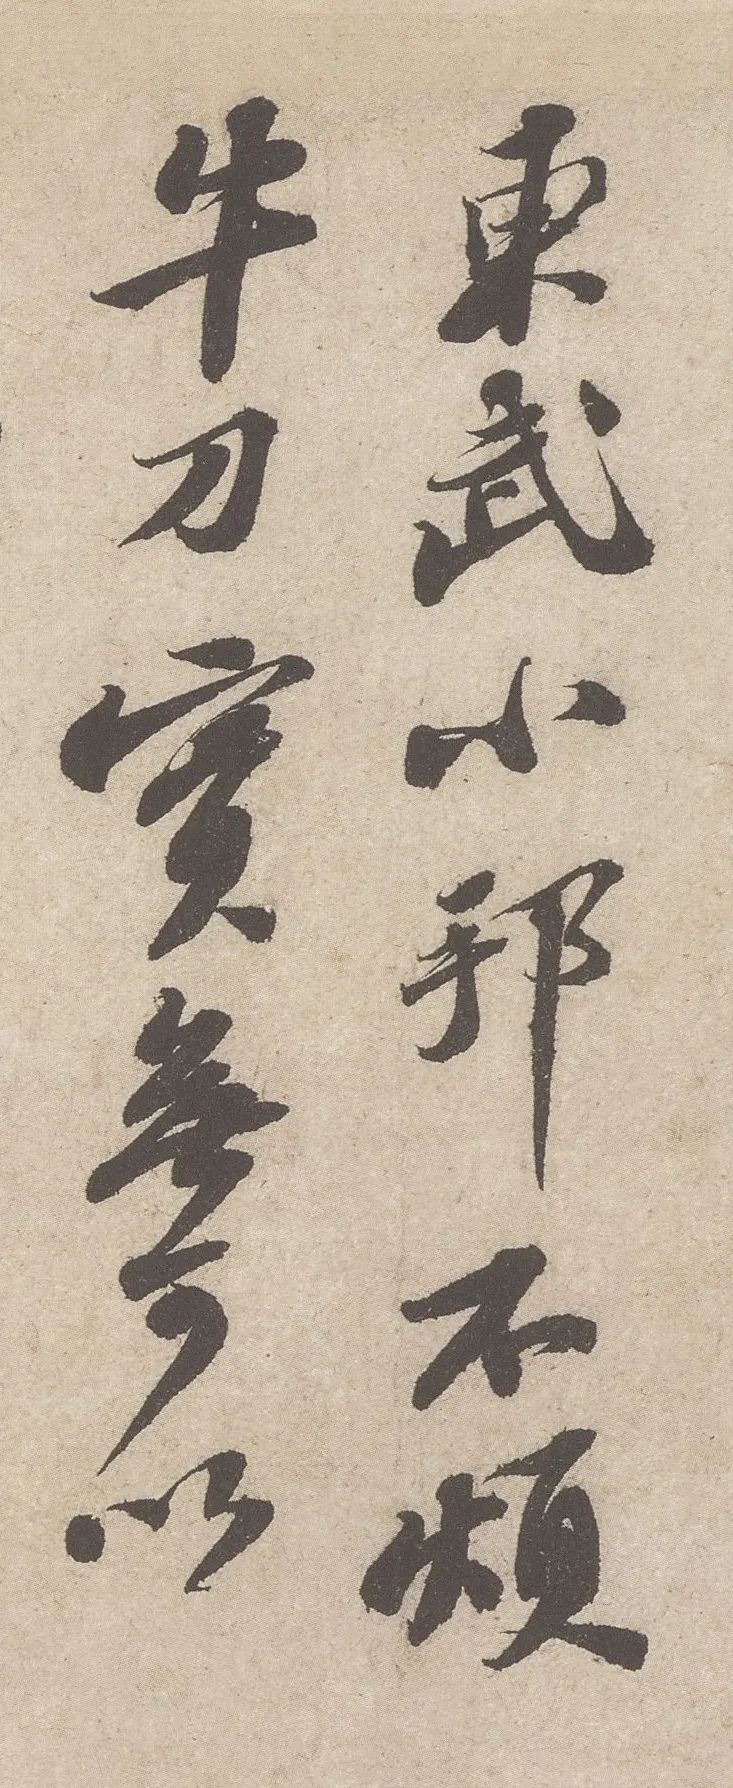 東武小邦不煩
牛刀實無可以